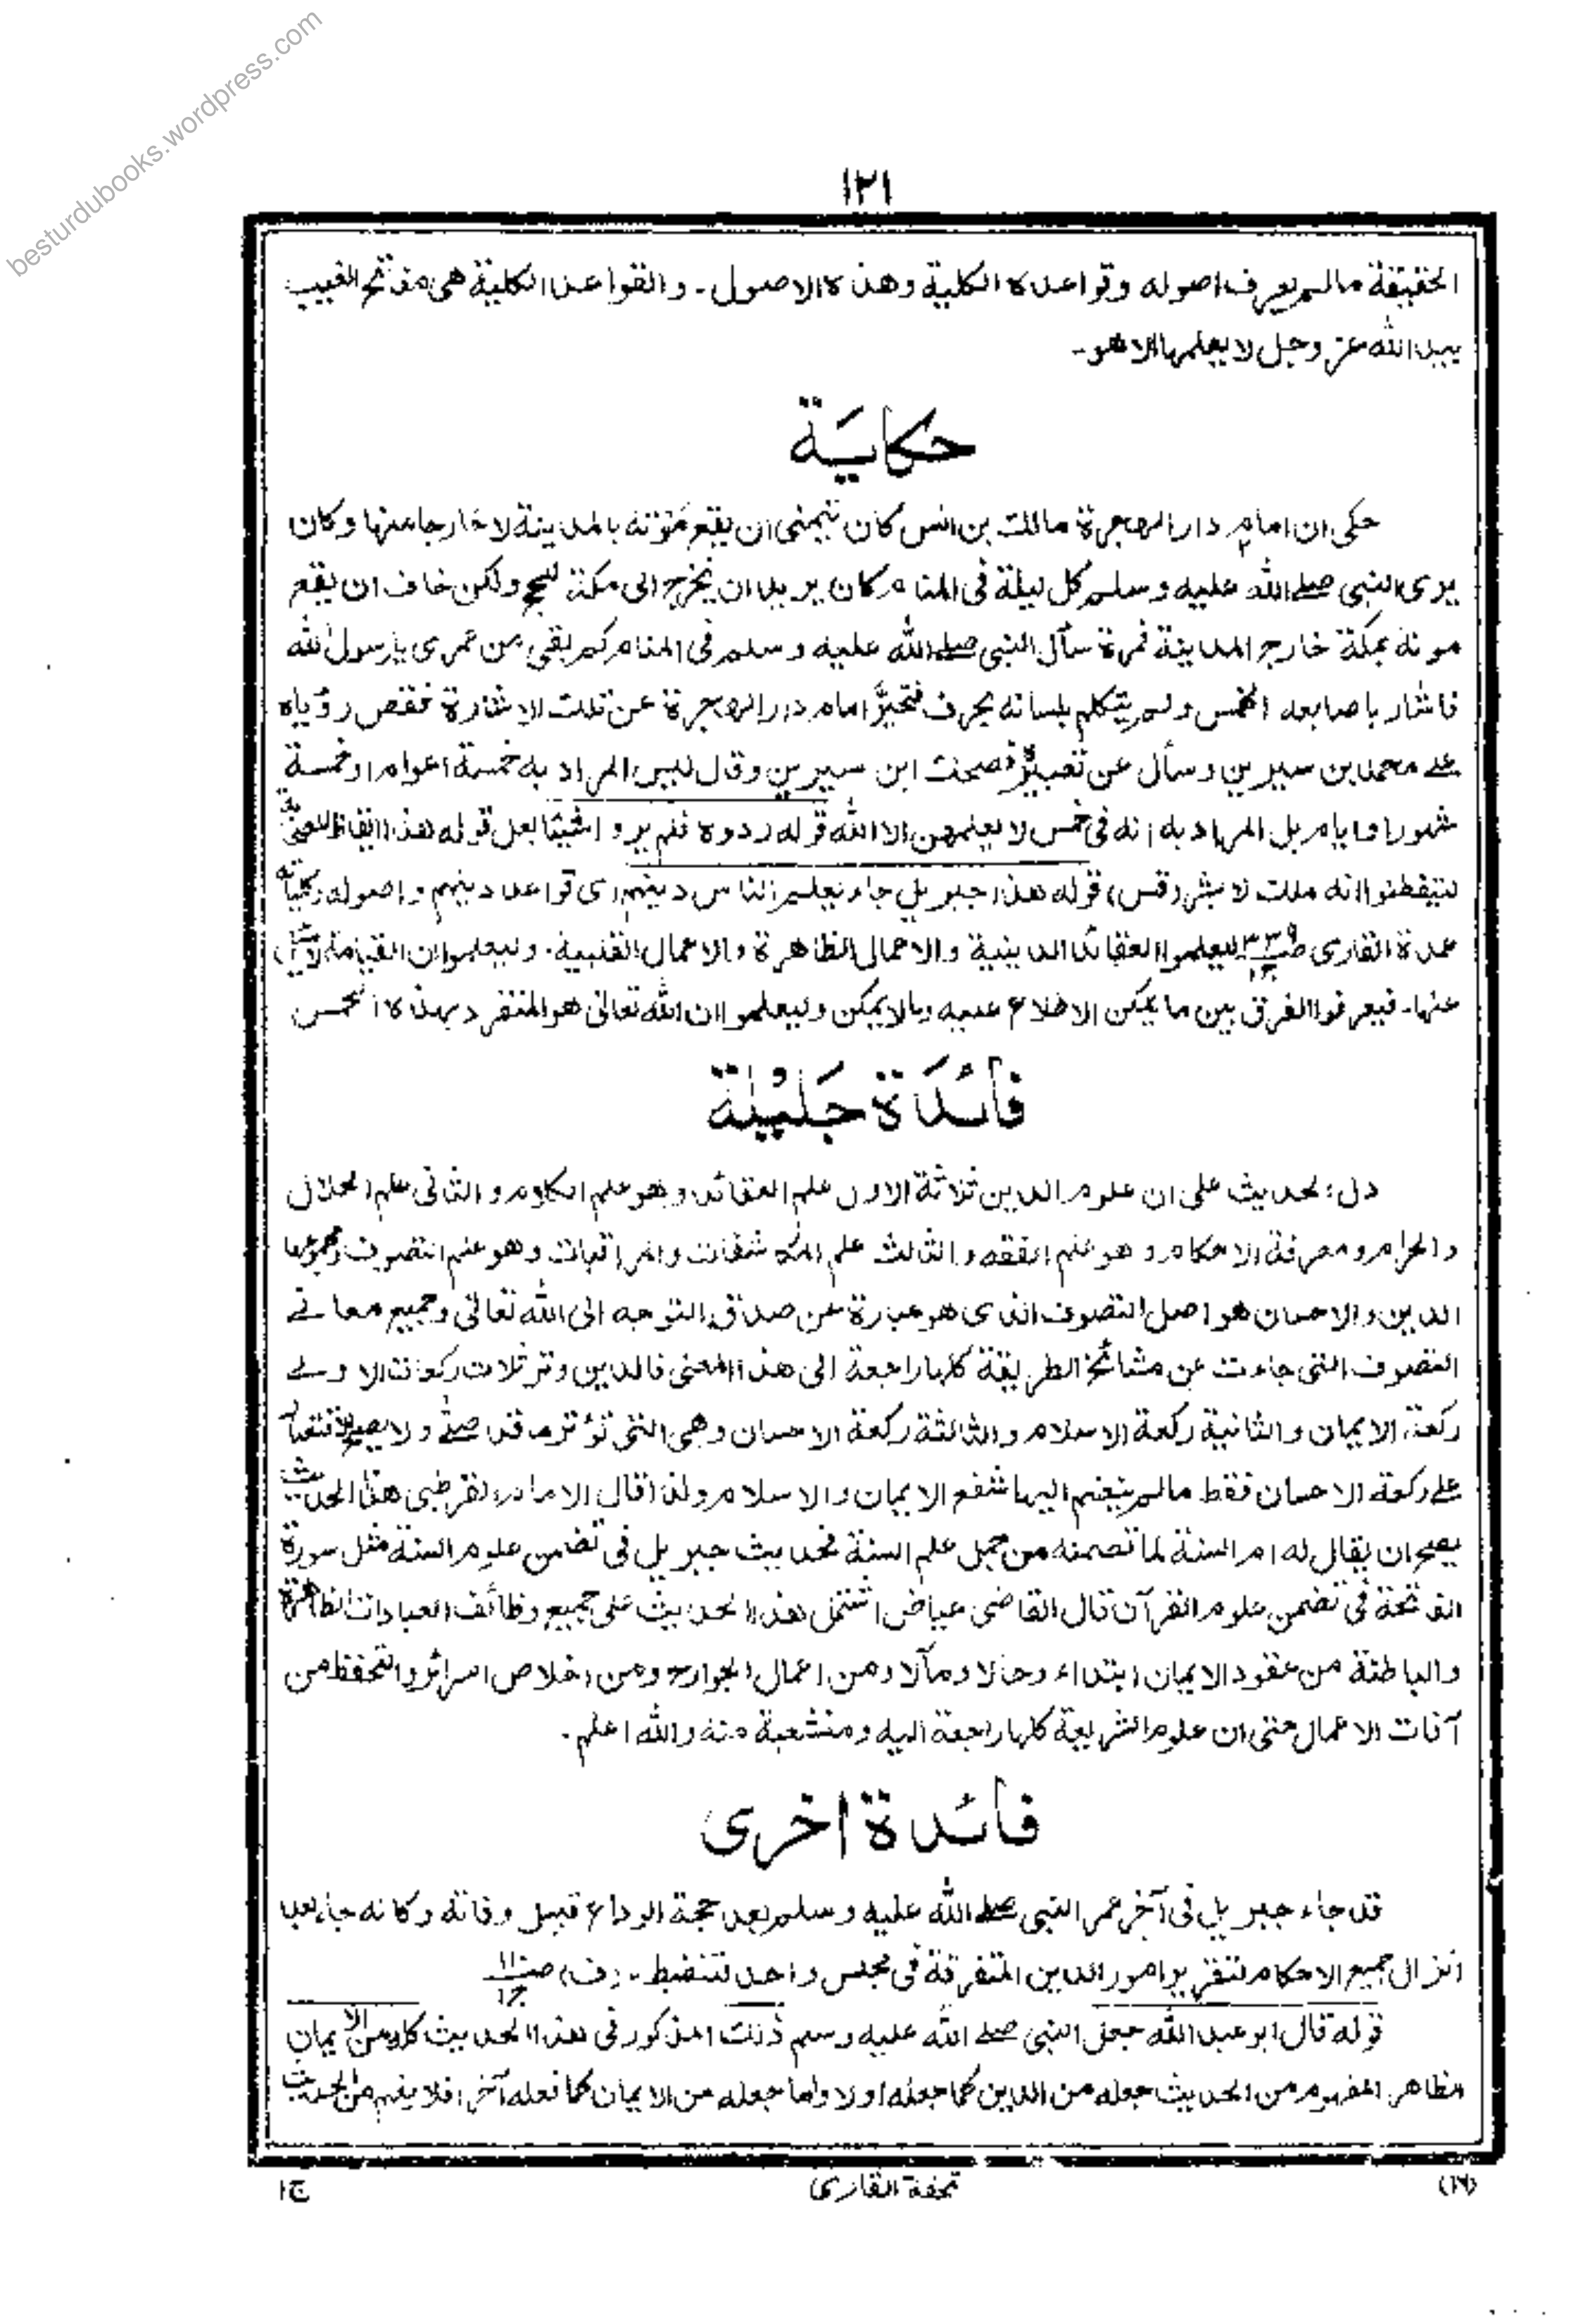 besturdubooks.wordpress.com
۱۲۱
الحقيقة مالم يعرف اصوله وقواعده الكلية وهذه الاصول۔ والقواعد الكلية هى مفاتح الغيب
بيد الله عز وجل لا يعلمها الا هو۔
حكايَة
حكى ان امام دار الهجرة مالك بن انس كان يتمنى ان يقع موته بالمدينة لا خارجا عنها وكان
يرى النبى صلے الله عليه وسلم كل ليلة فى المنام كان يريد ان يخرج الى مكة للحج ولكن خاف ان يقع
موته بمكة خارج المدينة فمرة سأل النبى صلے الله عليه وسلم فى المنام كم بقى من عمرى يا رسول الله
فاشار باصابعه الخمس ولم يتكلم بلسانه بحرف فتحيّر امام دار الهجرة عن تلك الاشارة فقص رؤياه
علے محمد بن سيرين وسأل عن تعبيره فضحك ابن سيرين وقال ليس المراد به خمسة اعوام او خمسة
شهور او ايام بل المراد به انه فى خمس لا يعلمهن الا الله قوله ردوه فلم يروا شيئا لعل قوله هذا ايقاظ للصحابة
ليتفطنوا انه ملك لا بشر (قس) قوله هذا جبريل جاء يعلم الناس دينهم اى قواعد دينهم واصوله وكلياته
عمدة القارى ليعلموا العقائد الدينية والاعمال الظاهرة والاعمال القلبية۔ وليعلموا ان القيامة لا يسأل
عنها۔ فيعرفوا الفرق بين ما يمكن الاطلاع عليه ومالا يمكن وليعلموا ان الله تعالى هو المتفرد بهذه الخمس
فَائدَة جَليلة
دل الحديث على ان علوم الدين ثلاثة الاول علم العقائد وهو علم الكلام والثانى علم الحلال
والحرام ومعرفة الاحكام وهو علم الفقه والثالث علم المكاشفات والمراقبات وهو علم التصوف ومجموعها
الدين والاحسان هو اصل التصوف الذى هو عبارة عن صدق التوجه الى الله تعالى وجميع معانے
التصوف التى جاءت عن مشائخ الطريقة كلها راجعة الى هذا المعنى فالدين وتر ثلاث ركعات الاولے
ركعة الايمان والثانية ركعة الاسلام والثالثة ركعة الاحسان وهى التى توتر ما قد صلى ولا يصح الاقتصار
علے ركعة الاحسان فقط مالم ينضم اليها شفع الايمان والاسلام ولذا قال الامام القرطبى هذا الحديث
يصح ان يقال له ام السنة لما تضمنه من جمل علم السنة فحديث جبريل فى تضمن علوم السنة مثل سورة
الفاتحة فى تضمن علوم القرآن قال القاضى عياض اشتمل هذا الحديث على جميع وظائف العبادات الظاهرة
والباطنة من عقود الايمان ابتداء وحالا ومآلا ومن اعمال الجوارح ومن اخلاص السرائر والتحفظ من
آفات الاعمال حتى ان علوم الشريعة كلها راجعة اليه ومنشعبة منه والله اعلم۔
فائدة اخرى
قد جاء جبريل فى آخر عمر النبى صلے الله عليه وسلم بعد حجة الوداع قبيل وفاته وكانه جاء بعد
انزال جميع الاحكام لتقرير امور الدين المتفرقة فى مجلس واحد لتنضبط۔ (ف)
قوله قال ابو عبد الله جعل النبى صلے الله عليه وسلم ذلك المذكور فى هذا الحديث كله من الايمان
الظاهر المفهوم من الحديث جعله من الدين كما جعله اولا واما جعله من الايمان كما فعله آخرا فلا يفهم من الحديث
(۱۶)
تحفة القارى
ج۱